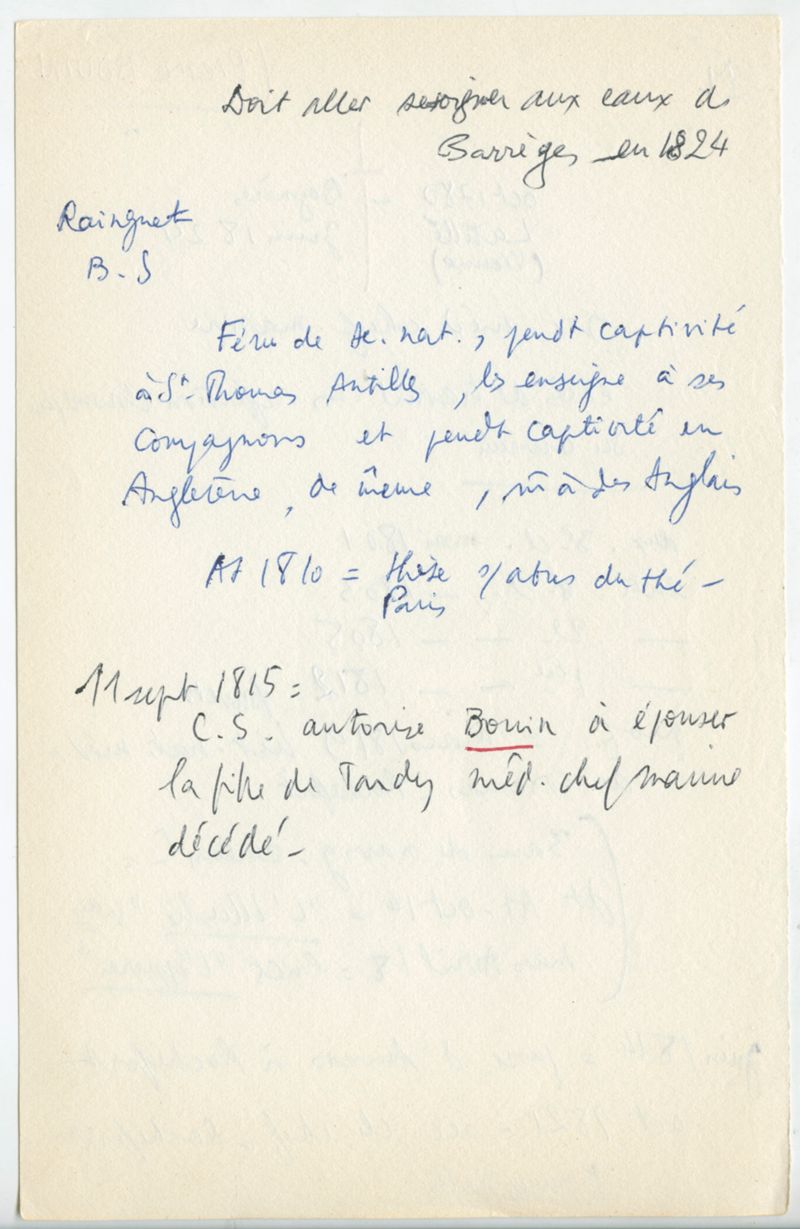 Doit aller se soigner aux eaux de
Barrèges en 1824
Rainguet
B. S
Féru de sc. nat., pendt captivité
à St-Thomas Antilles, les enseigne à ses
compagnons et pendt captivité en
Angleterre, de même, m̂ à des Anglais
At 1810 = thèse s/abus du thé -
Paris
11 sept 1815 =
C.S. autorise Bouin à épouser
la fille de Tardy méd. chef marine
décédé -